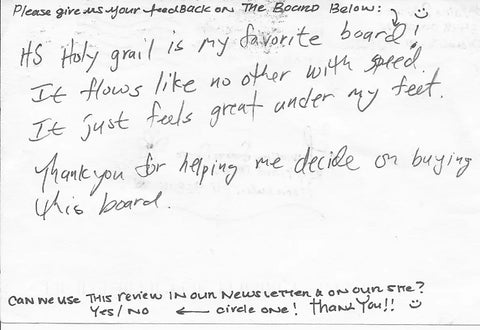 Please give us your feedback on The Board Below: ☺
HS Holy grail is my favorite board!
It flows like no other with speed.
It just feels great under my feet.
Thank you for helping me decide on buying
this board.
Can we use This review in our Newsletter & on our site?
Yes/No ← circle one! Thank You!! ☺